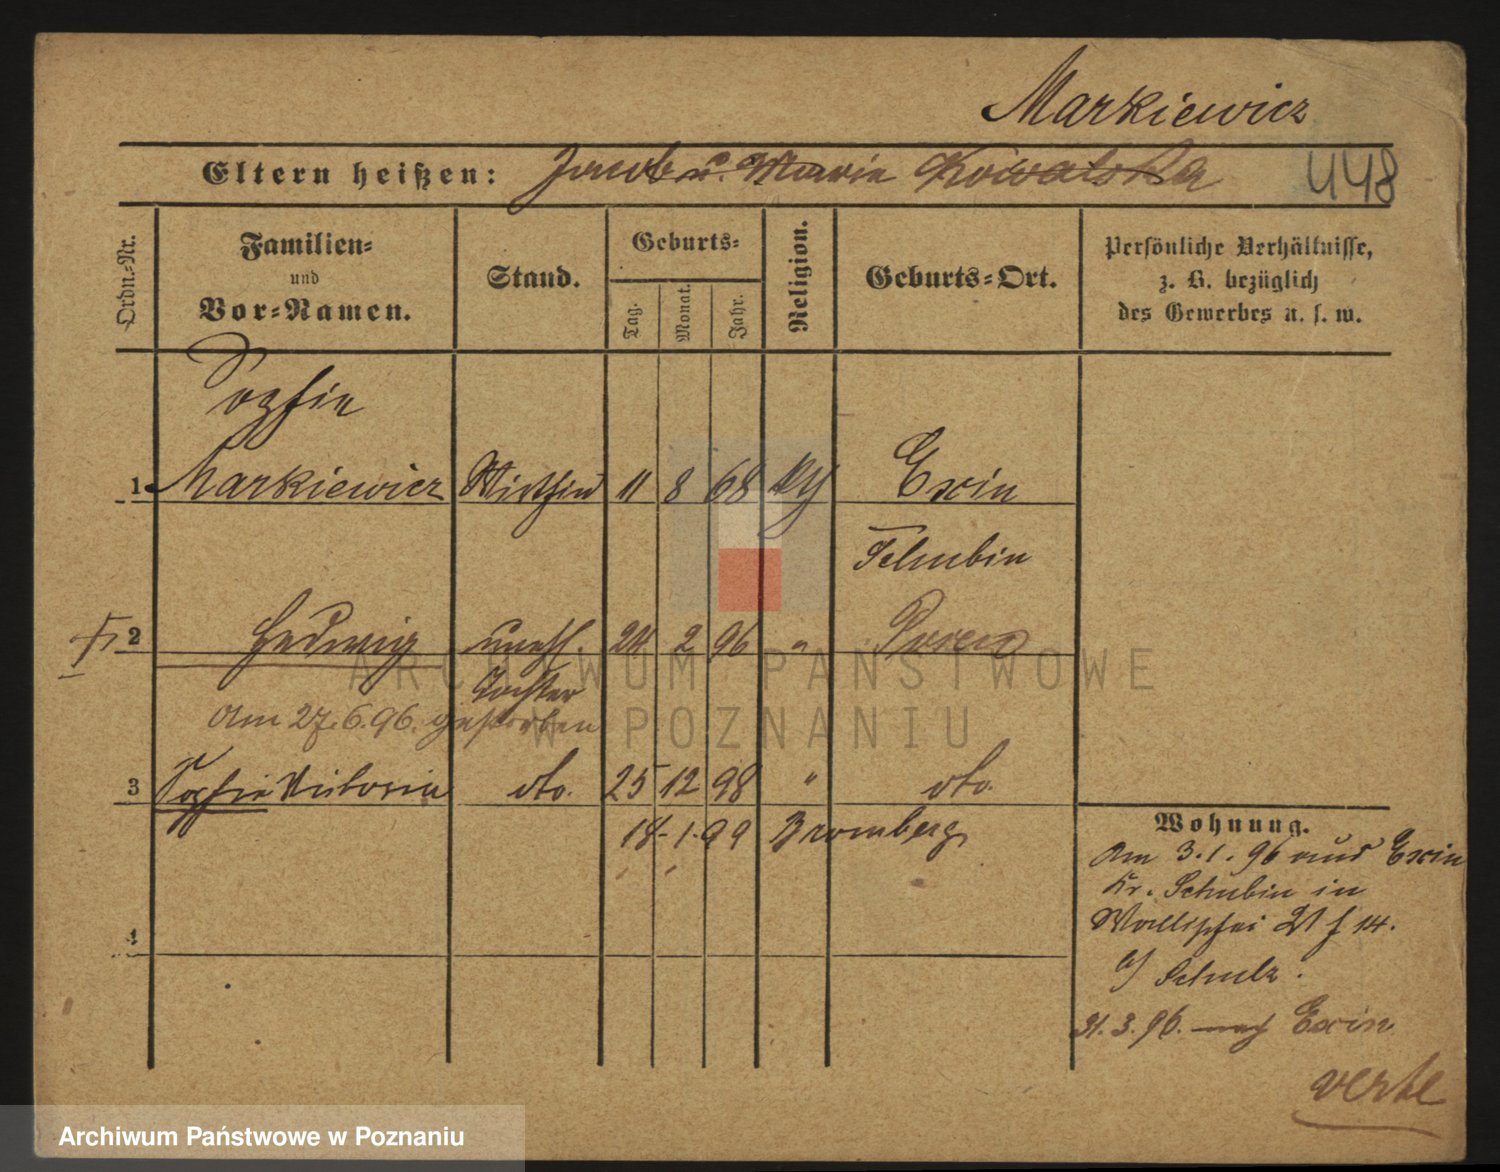 Markiewicz
Eltern heißen: Jacob u. Marie Kowalska 448
Ordn.-Nr.
Familien-
und
Vor-Namen.
Stand.
Geburts-
Tag.
Monat.
Jahr.
Religion.
Geburts-Ort.
Persönliche Verhältnisse,
z. B. bezüglich
des Gewerbes u. s. w.
Sophie
1 Markiewicz Wirthin 11 8 68 Exin
Schubin
2 Hedwig unehl. 24 2 96 " Posen
Tochter
Am 27.6.96. gestorben
3 Sophie Victoria dto. 25 12 98 " dto.
18. 1. 99 Bromberg
4
Wohnung.
Am 3.1.96 aus Exin
Kr. Schubin in
Wallischei 14.
b/ Schulz.
31.3.96. nach Exin
verte
ARCHIWUM PAŃSTWOWE
W POZNANIU
Archiwum Państwowe w Poznaniu